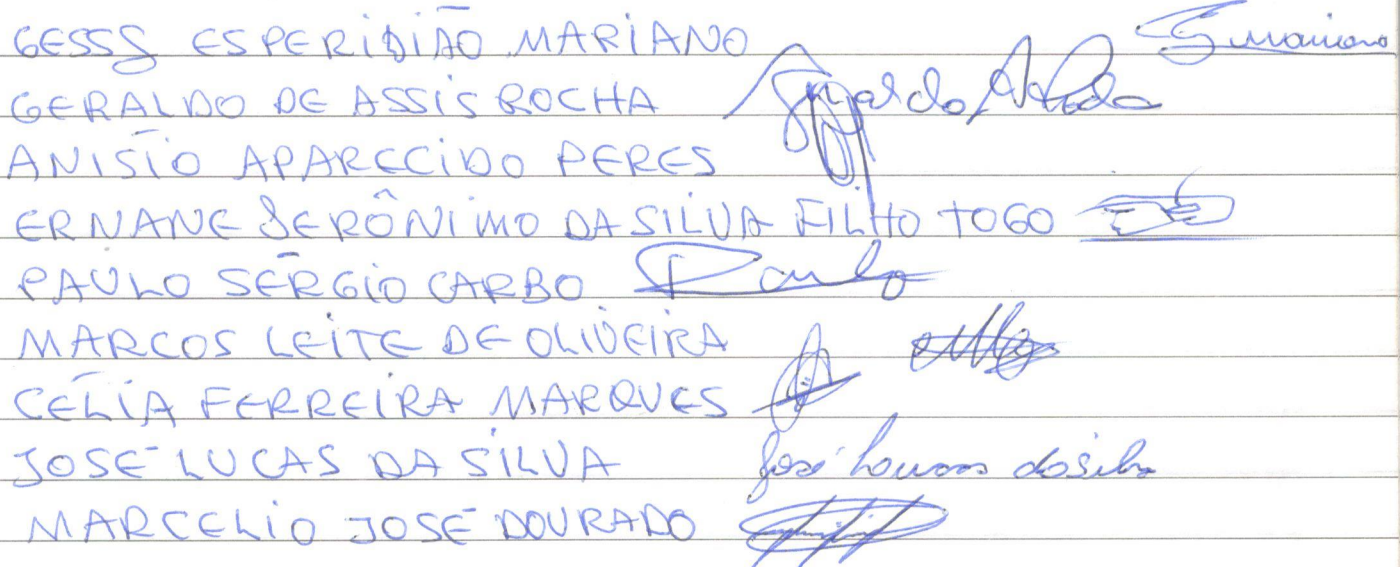 ESPERIDIÃO MARIANO
GERALDO DE ASSIS ROCHA
ANISÍO APARECIDO PERES
ERNANE JERÔNIMO DA SILVA FILHO TOGO
PAULO SÉRGIO CARBO Paulo
MARCOS LEITE DE OLIVEIRA
CÉLIA FERREIRA MARQUES
JOSÉ LUCAS DA SILVA José
MARCELIO JOSÉ DOURADO